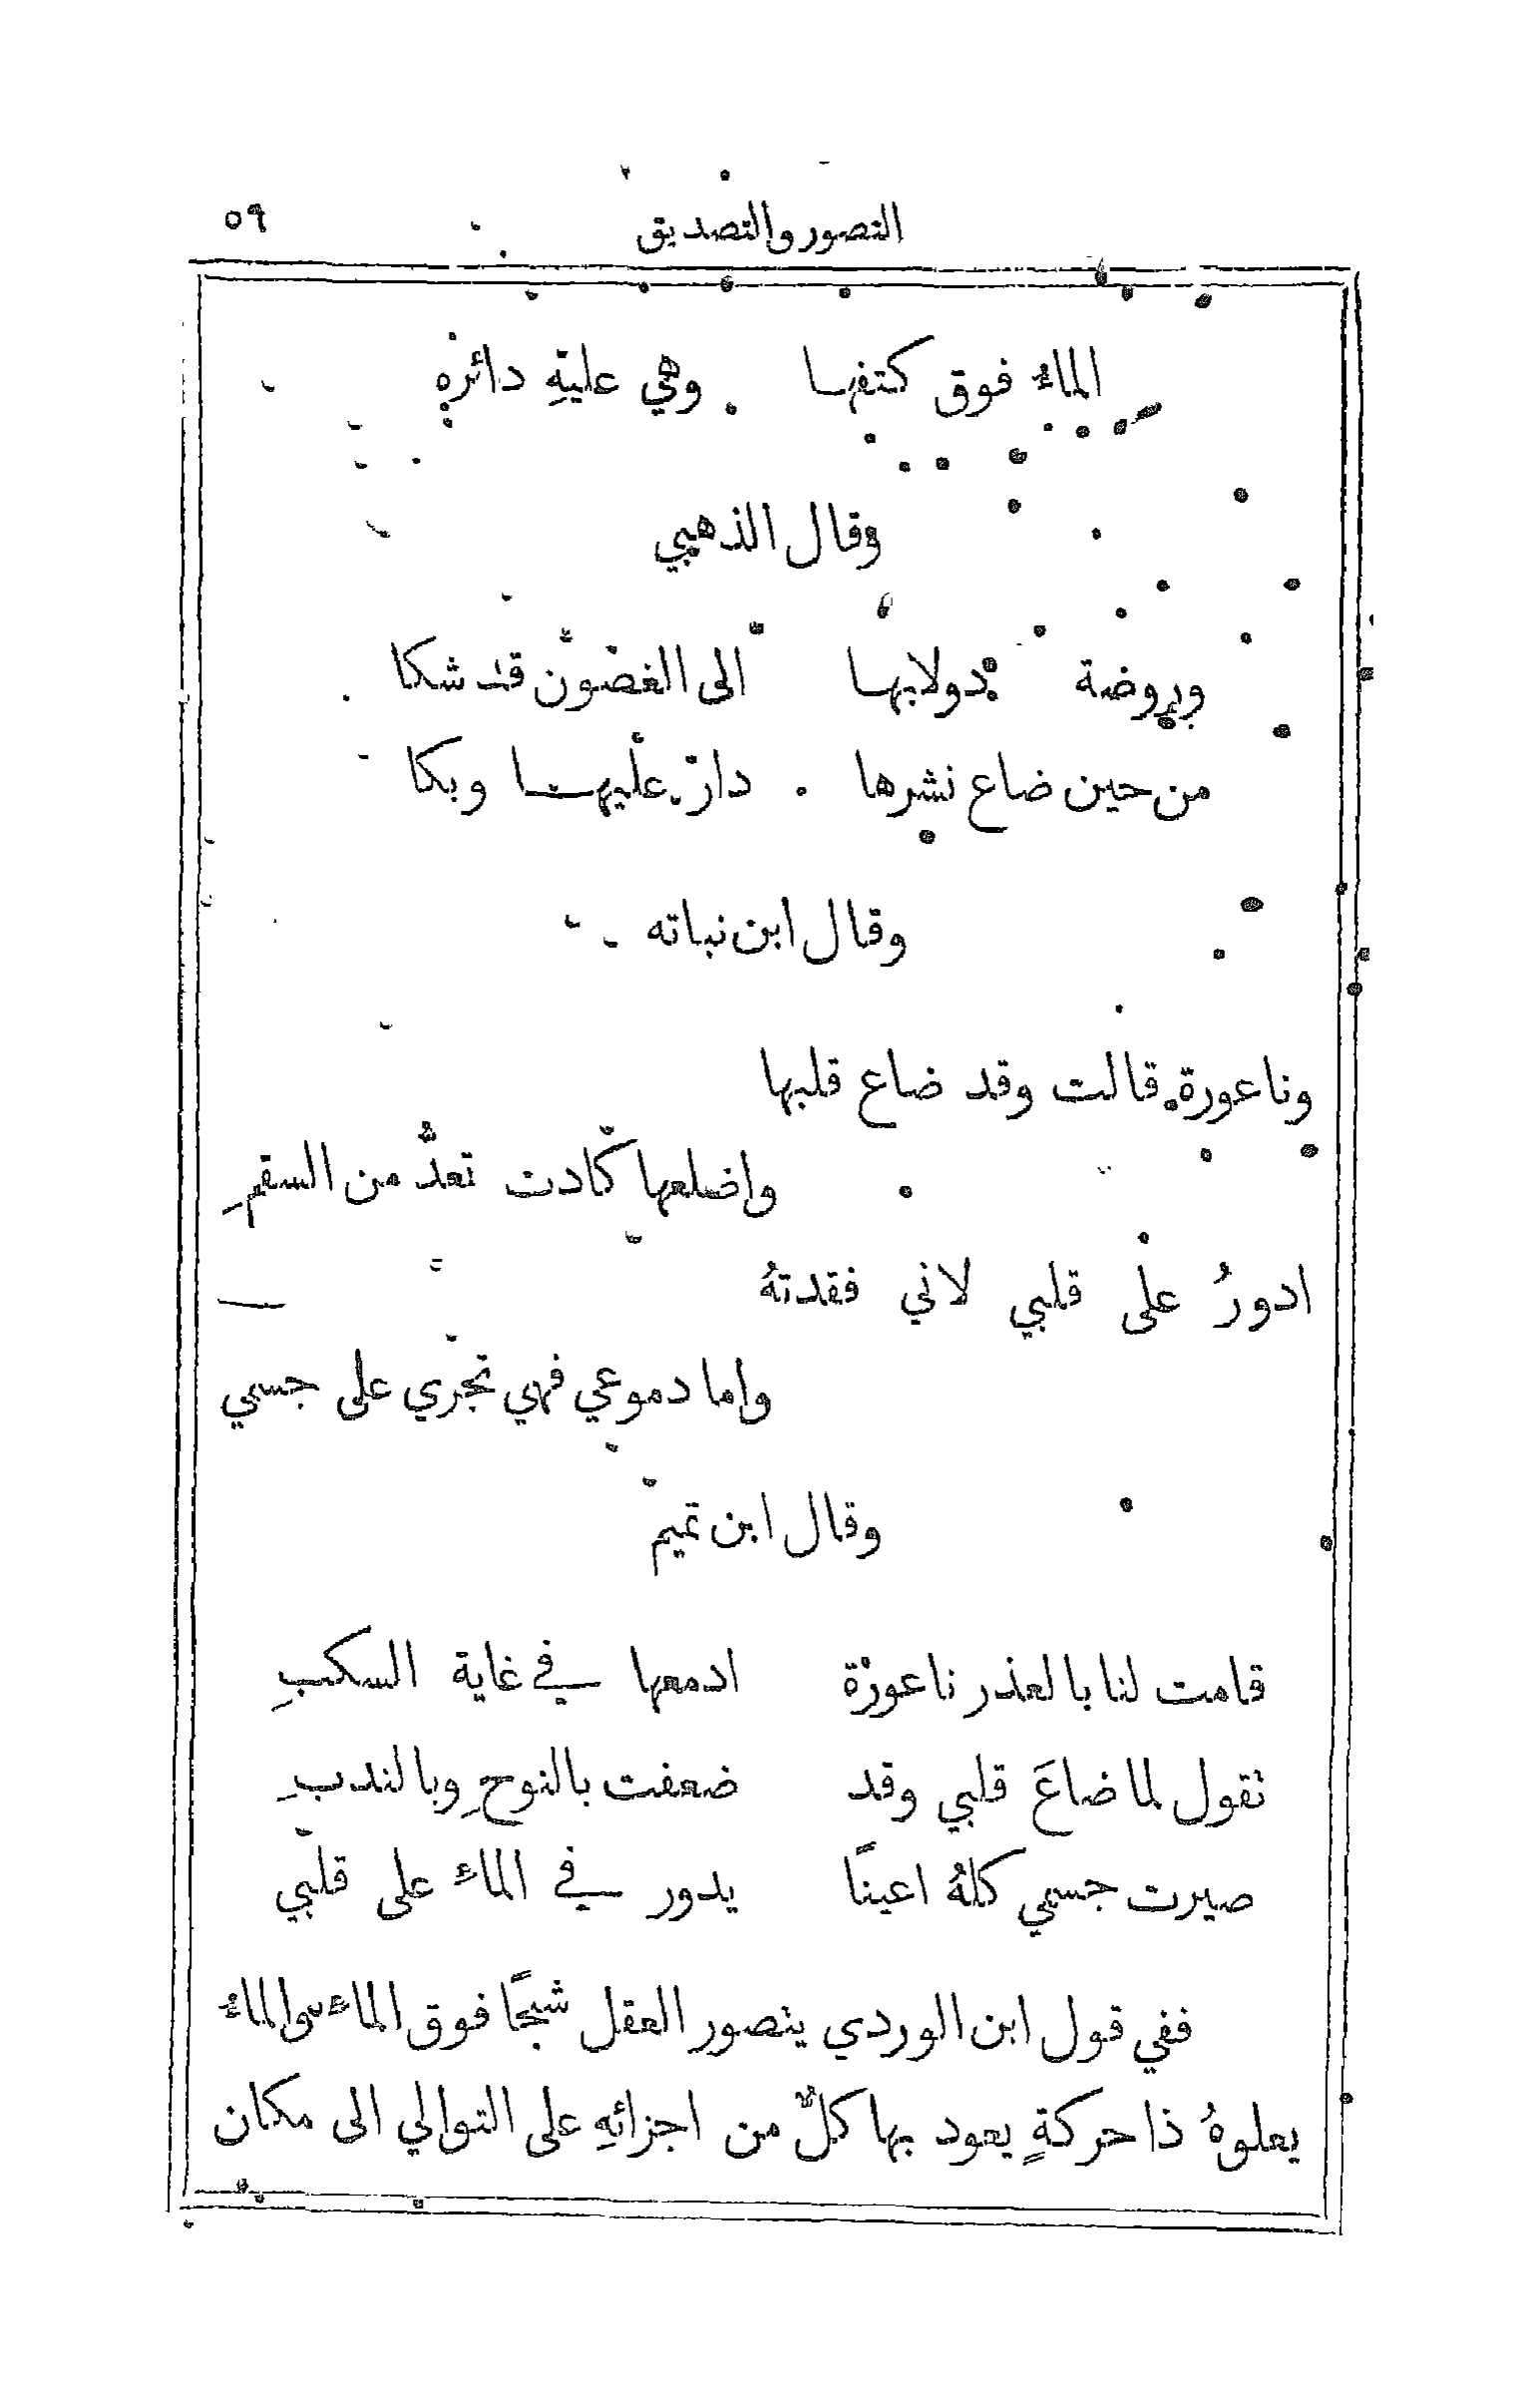 التصور والتصديق ٥٩
الماءُ فوق كتفها وهي عليهِ دائره
وقال الذهبي
وبروضة دولابها الى الغصون قد شكا
من حين ضاع نشرها دار عليها وبكا
وقال ابن نباته
وناعورة قالت وقد ضاع قلبها
واضلعها كادت تعدُّ من السقمِ
ادورُ على قلبي لاني فقدتهُ
واما دموعي فهي تجري على جسمي
وقال ابن تميم
قامت لنا بالعذر ناعورة ادمعها في غاية السكبِ
تقول لما ضاعَ قلبي وقد ضعفت بالنوحِ وبالندبِ
صيرت جسمي كلهُ اعينًا يدور في الماء على قلبي
ففي قول ابن الوردي يتصور العقل شبحًا فوق الماء والماءُ
يعلوهُ ذا حركةٍ يعود بها كلٌّ من اجزائهِ على التوالي الى مكان